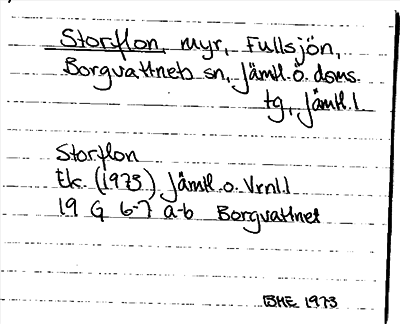 Storflon, myr, Fullsjön,
Borgvattnets sn, Jämtl. Ö. doms.
tg, Jämtl. l.
Storflon
tk. (1973) Jämtl. o. Vrnl. l
19 G 6-7 a-b Borgvattnet
BHE 1973